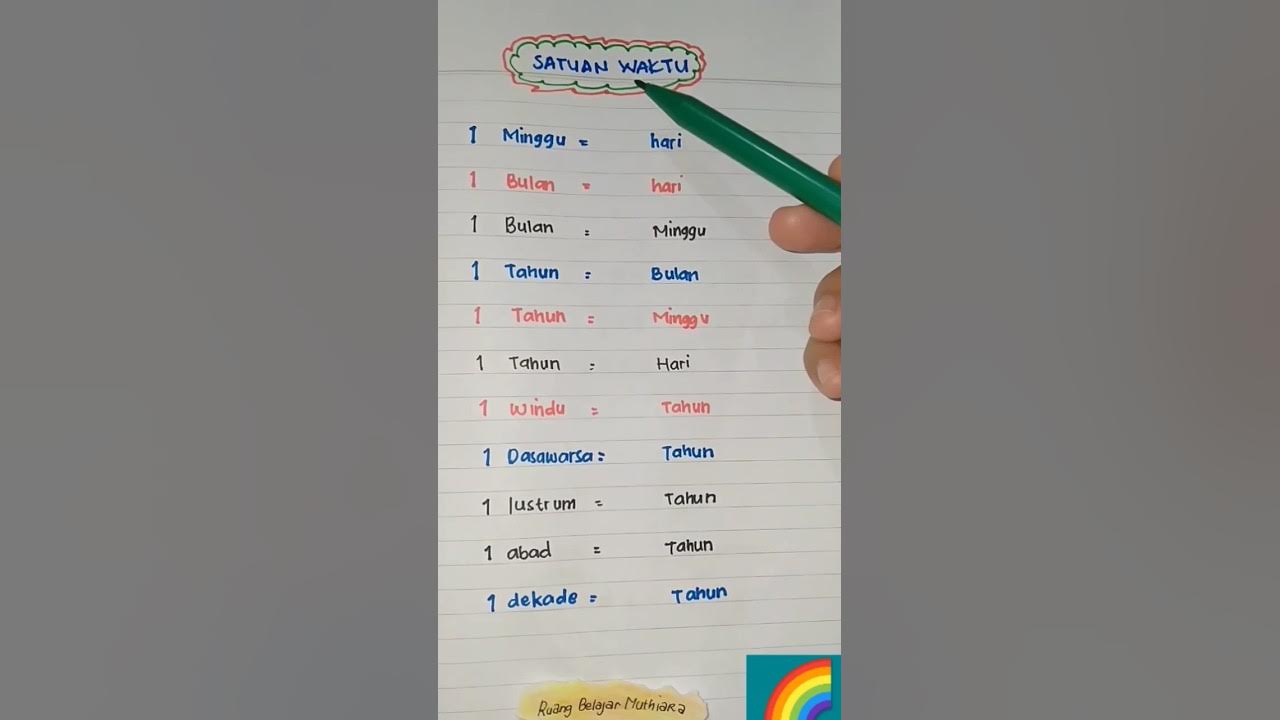 SATUAN WAKTU
1 Minggu = hari
1 Bulan = hari
1 Bulan = Minggu
1 Tahun = Bulan
1 Tahun = Minggu
1 Tahun = Hari
1 windu = Tahun
1 Dasawarsa = Tahun
1 lustrum = Tahun
1 abad = Tahun
1 dekade = Tahun
Ruang Belajar Muthiara